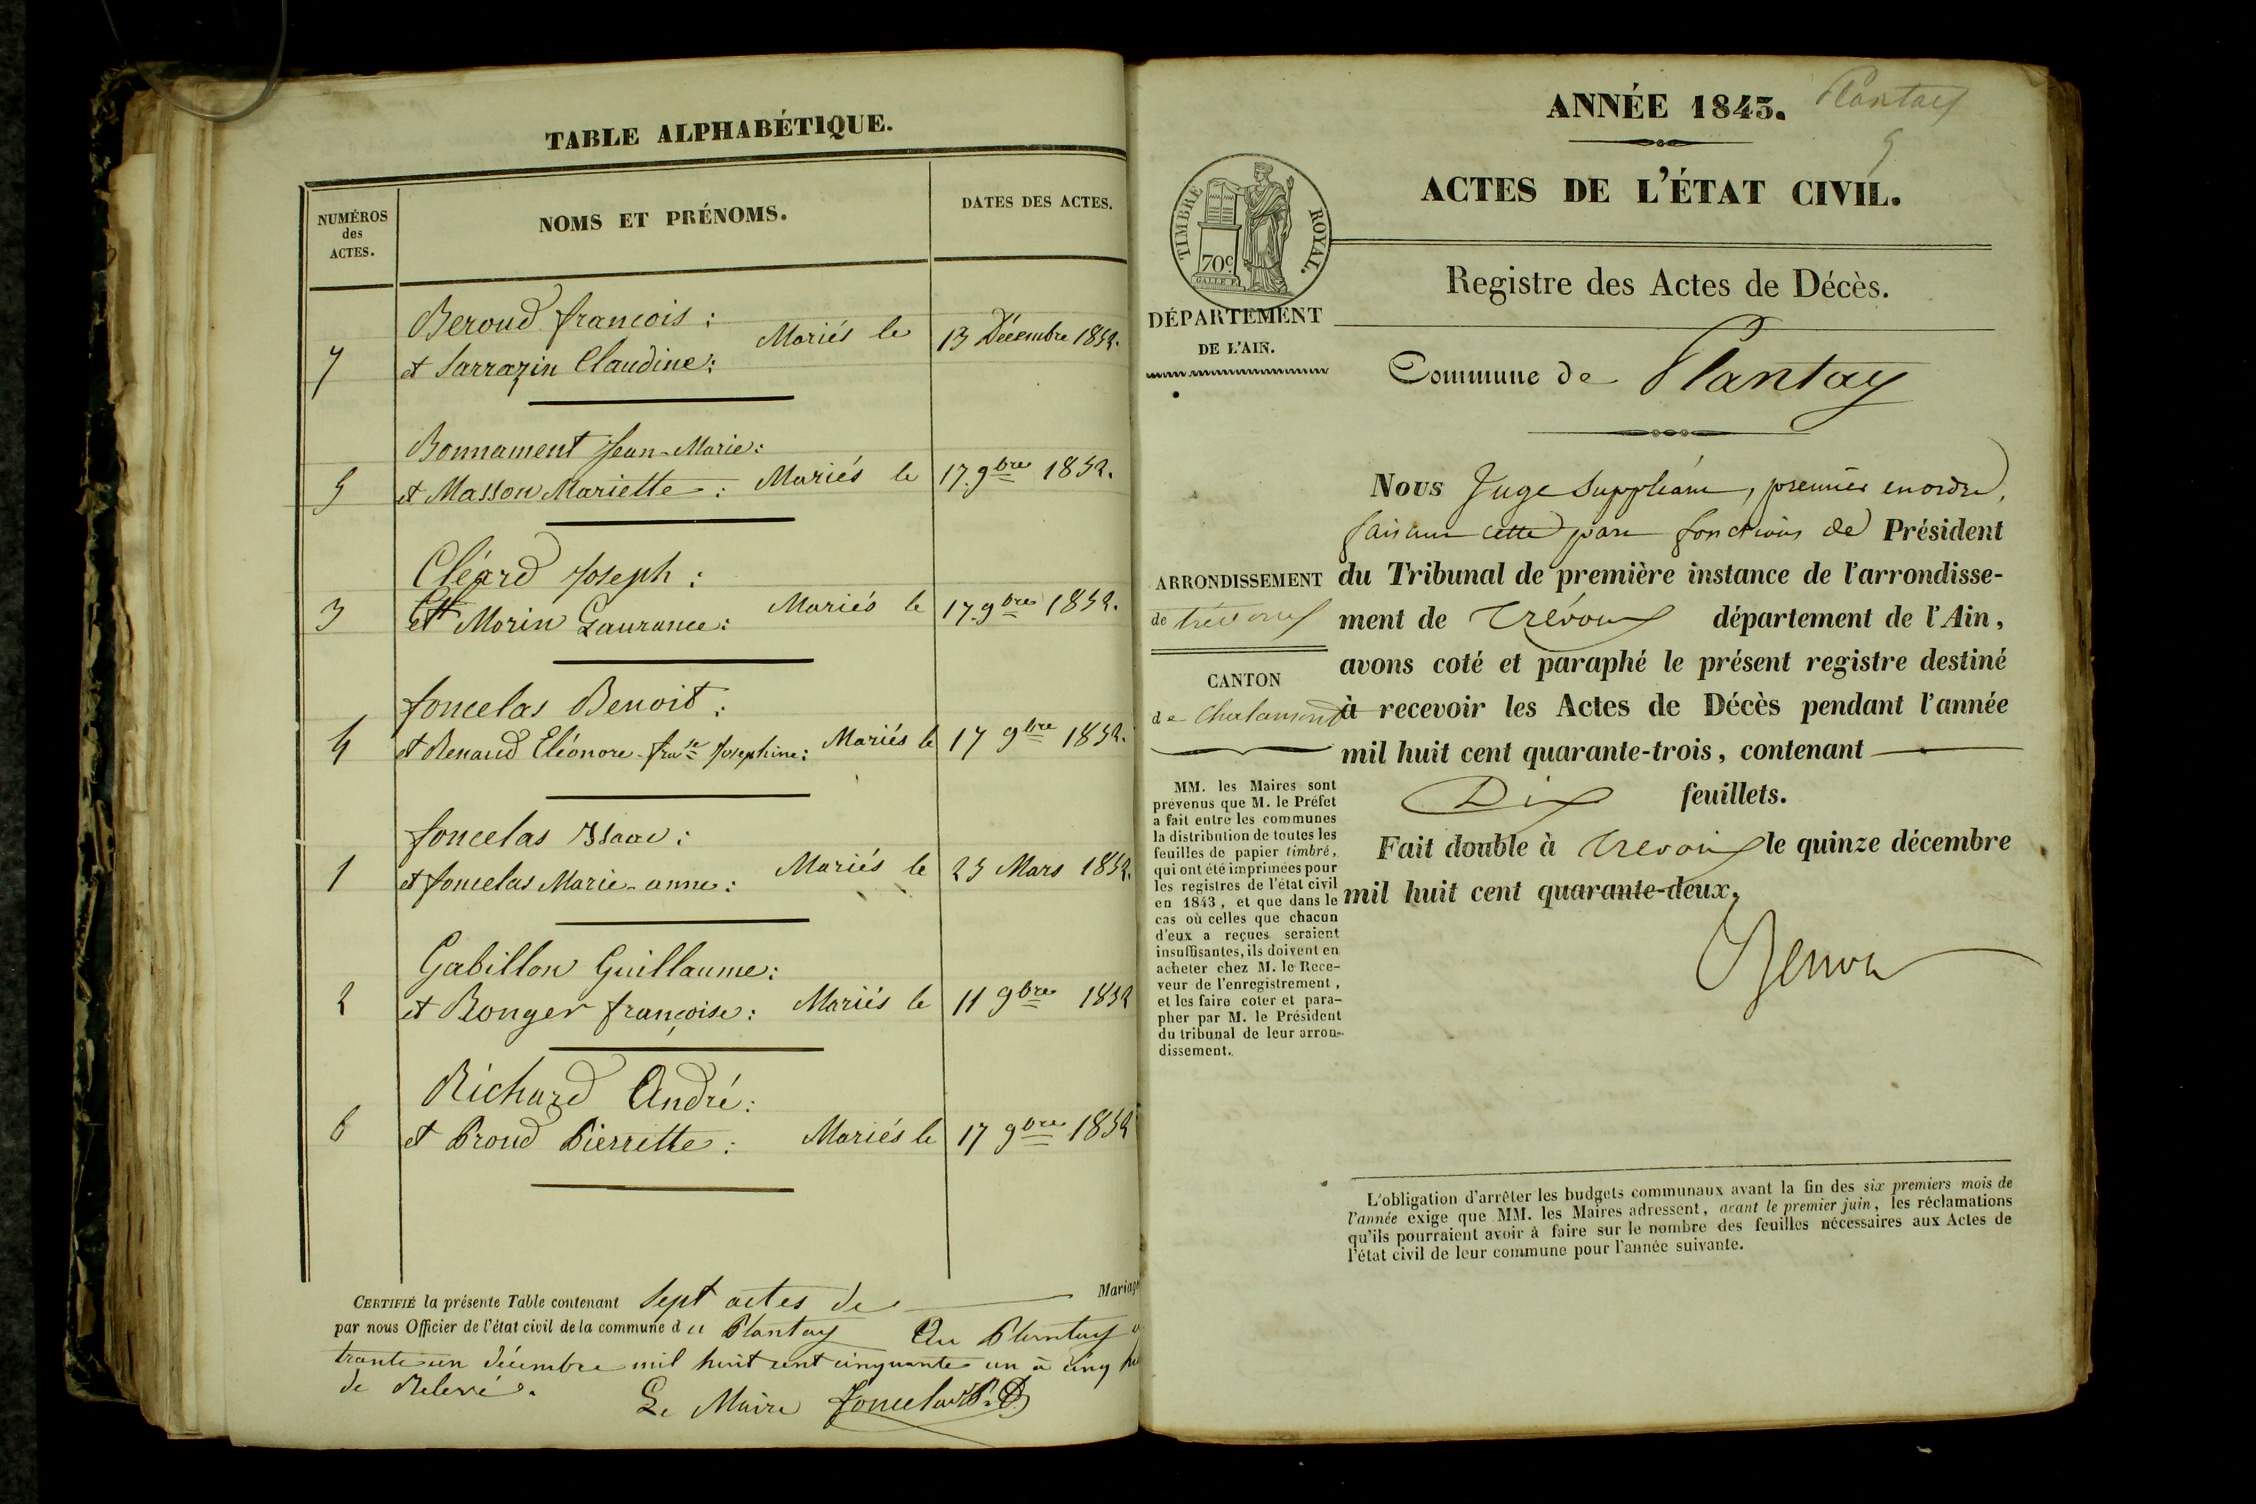 TABLE ALPHABÉTIQUE.
NUMÉROS
des
ACTES.
NOMS ET PRÉNOMS.
DATES DES ACTES.
Beroud françois :
7 et Sarrazin Claudine: Mariés le 13 Décembre 1852.
Bonnament Jean-Marie:
5 et Masson Mariette : Mariés le 17 9bre 1852.
Cléard Joseph :
3 et Morin Laurance: Mariés le 17 9bre 1852.
foncelas Benoit :
4 et Renaud Eléonore-frse Josephine: Mariés le 17 9bre 1852.
foncelas Isaac :
1 et foncelas Marie-anne: Mariés le 23 Mars 1852.
Gabillon Guillaume:
2 et Bonger françoise: Mariés le 11 9bre 1852
Richard André:
6 et Broud Pierrette: Mariés le 17 9bre 1852
CERTIFIÉ la présente Table contenant Sept actes de Mariage
par nous Officier de l'état civil de la commune du Plantay Au Plantay
trante un décembre mil huit cent cinquante un à cinq
de Relevé.
Le Maire
ANNÉE 1843. Plantay
5
ACTES DE L'ÉTAT CIVIL.
TIMBRE ROYAL.
70c
GALLE F.
Registre des Actes de Décès.
DÉPARTEMENT
DE L'AIN.
Commune de Plantay
Nous Juge Suppléant, premier en ordre,
faisant cette part fonctions de Président
du Tribunal de première instance de l'arrondisse-
ment de Trévoux département de l'Ain,
avons coté et paraphé le présent registre destiné
à recevoir les Actes de Décès pendant l'année
mil huit cent quarante-trois, contenant
Dix feuillets.
Fait double à Trevoux le quinze décembre
mil huit cent quarante-deux.
ARRONDISSEMENT
de trévoux
CANTON
de Chalamont
MM. les Maires sont
prévenus que M. le Préfet
a fait entre les communes
la distribution de toutes les
feuilles de papier timbré,
qui ont été imprimées pour
les registres de l'état civil
en 1843, et que dans le
cas où celles que chacun
d'eux a reçues seraient
insuffisantes, ils doivent en
acheter chez M. le Rece-
veur de l'enregistrement,
et les faire coter et para-
pher par M. le Président
du tribunal de leur arron-
dissement.
L'obligation d'arrêter les budgets communaux avant la fin des six premiers mois de
l'année exige que MM. les Maires adressent, avant le premier juin, les réclamations
qu'ils pourraient avoir à faire sur le nombre des feuilles nécessaires aux Actes de
l'état civil de leur commune pour l'année suivante.